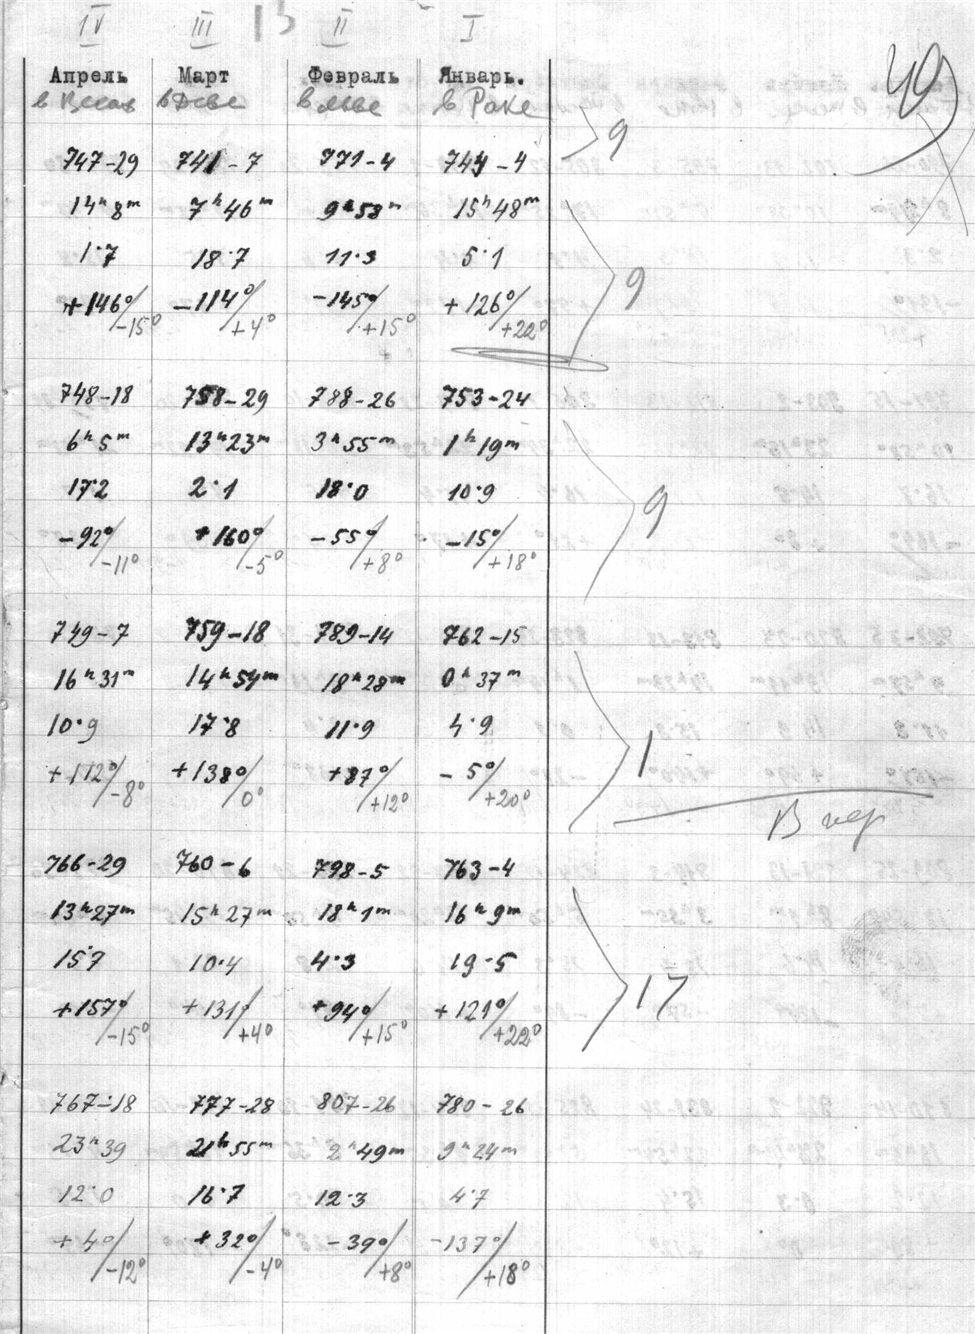 IV III 13 II I
Апрель Март Февраль Январь. 49
в Весах в Деве в Льве в Раке
9
747-29 741-7 771-4 744-4
14h 8m 7h 46m 9h 58m 15h 48m
1·7 18·7 11·3 5·1 9
+146°/-15° -114°/+4° -145°/+15° +126°/+22°
748-18 758-29 788-26 753-24
6h 5m 13h 23m 3h 55m 1h 19m
17·2 2·1 18·0 10·9 9
-92°/-11° +160°/-5° -55°/+8° -15°/+18°
749-7 759-18 789-14 762-15
16h 31m 14h 54m 18h 28m 0h 37m
10·9 17·8 11·9 4·9 1
+112°/-8° +138°/0° +87°/+12° -5°/+20°
В пер
766-29 760-6 798-5 763-4
13h 27m 15h 27m 18h 1m 16h 9m
15·7 10·4 4·3 19·5 17
+157°/-15° +131°/+4° +94°/+15° +121°/+22°
767-18 777-28 807-26 780-26
23h 39 21h 55m 2h 49m 9h 24m
12·0 16·7 12·3 4·7
+4°/-12° +32°/-4° -39°/+8° -137°/+18°